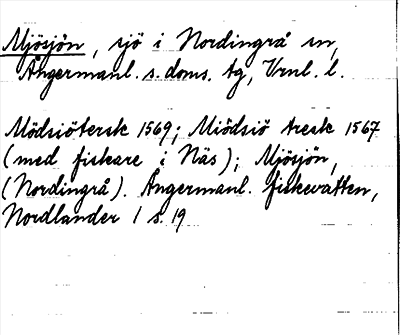 Mjösjön, sjö i Nordingrå sn,
Ångermanl. s. doms. tg, Vrnl. l.
Mödsiötersk 1569; Miödsiö tresk 1567
(med fiskare i Näs); Mjösjön,
(Nordingrå). Ångermanl. fiskevatten,
Nordlander 1 s. 19